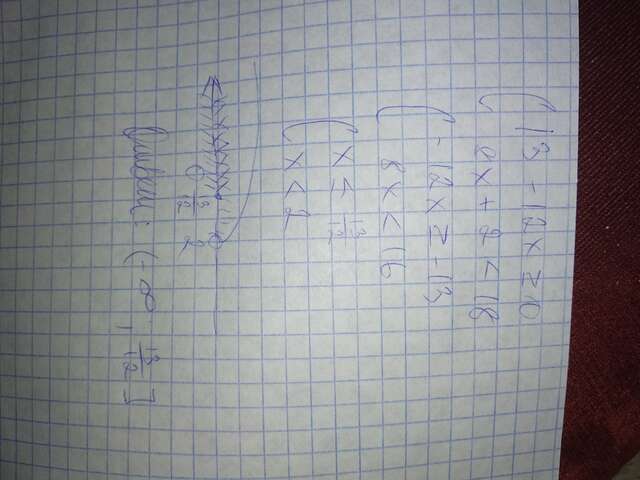 { 13 - 12x ≥ 0
8x + 2 < 18
{ -12x ≥ -13
8x < 16
{ x ≤ 13/12
x < 2
13/12 2
Ответ: (-∞; 13/12]